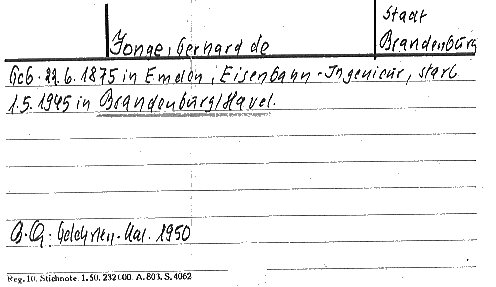 Stadt
Jonge, Gerhard de Brandenburg
Geb. 22.6.1875 in Emden, Eisenbahn-Ingenieur, starb
1.5.1945 in Brandenburg/Havel.
B.Q: Gelehrten-Kal. 1950
Reg. 10. Stichnote. 1.50. 232/000. A. 803. S. 4062